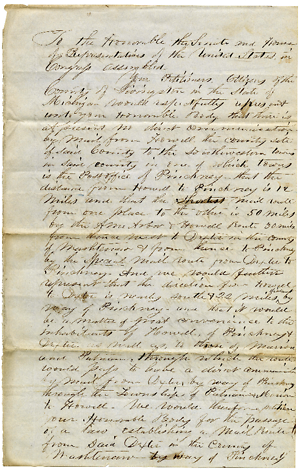 To the Honorable the Senate and House
of Representatives of the United States in
Congress assembled.
Your Petitioners, Citizens of the
County of Livingston in the State of
Michigan would respectfully represent
unto your Honorable Body that there is
at present no direct communication
by Mail from Howell the County seat
of said County to the Southwestern towns
in said County in one of which Towns
is the Post office of Pinckney - that the
distance from Howell to Pinckney is 12
miles and that the mail route
from one place to the other is 50 miles
by the Ann Arbor & Howell Route 30 miles
from Dexter in the County
of Washtenaw & from thence to Pinckney
by the Special Mail Route from Dexter to
Pinckney. And we would further
represent that the direction from Howell
to Dexter is south 22 miles by
way of Pinckney and that it would
be a matter of great convenience to the
Inhabitants of Howell, Pinckney
Dexter as well as to those of
and Putnam, through which the route
would pass to have a direct communication
by mail from Dexter by way of Pinckney
through the Townships of Putnam &
to Howell - We would therefore
your Honorable Body for the passage
of a law establishing a Mail Route
from Said Dexter in the County of
Washtenaw by way of Pinckney